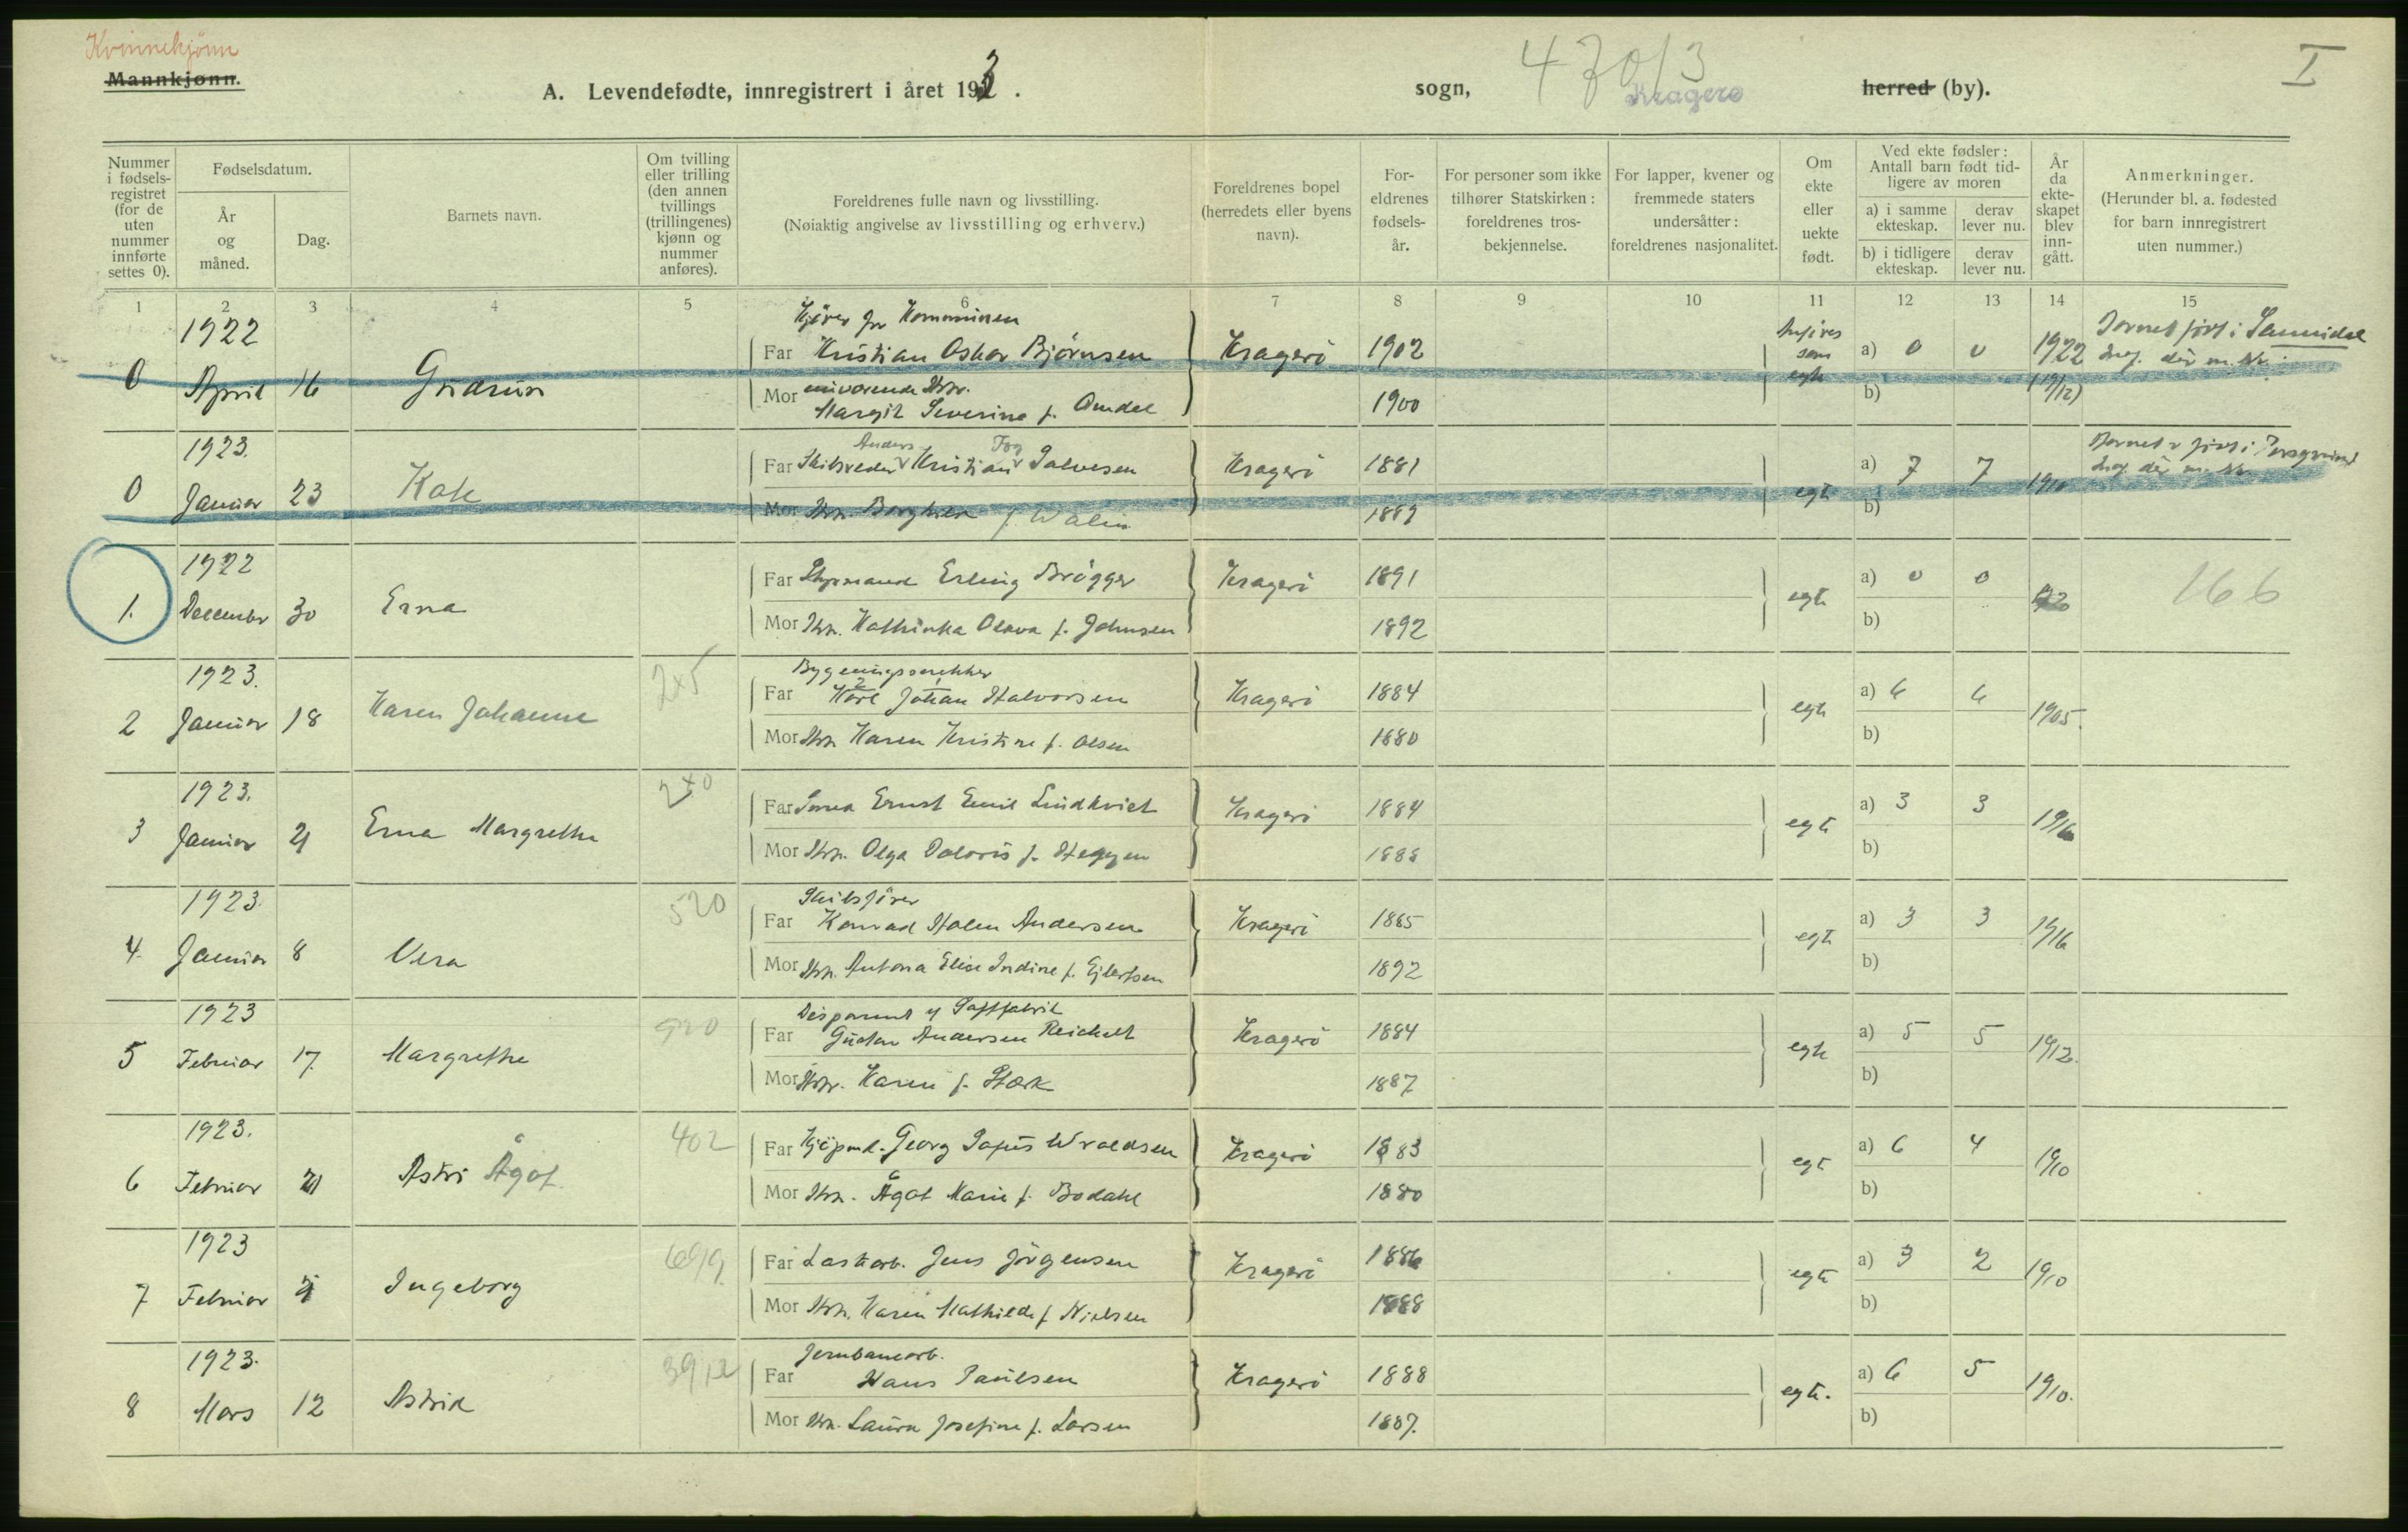 Kvinnekjønn
Mannkjønn.
A. Levendefødte, innregistrert i året 1923.
sogn,
47013
Kragerø
herred (by).
I
Nummer i fødselsregistret (for de uten nummer innførte settes 0).
Fødselsdatum.
År og måned.
Dag.
Barnets navn.
Om tvilling eller trilling (den annen tvillings (trillingenes) kjønn og nummer anføres).
Foreldrenes fulle navn og livsstilling.
(Nøiaktig angivelse av livsstilling og erhverv.)
Foreldrenes bopel (herredets eller byens navn).
For-eldrenes fødsels-år.
For personer som ikke tilhører Statskirken: foreldrenes tros-bekjennelse.
For lapper, kvener og fremmede staters undersåtter: foreldrenes nasjonalitet.
Om ekte eller uekte født.
Ved ekte fødsler: Antall barn født tid-ligere av moren
a) i samme ekteskap.
derav lever nu.
b) i tidligere ekteskap.
derav lever nu.
År da ekte-skapet blev inn-gått.
Anmerkninger.
(Herunder bl. a. fødested for barn innregistrert uten nummer.)
1 2 3 4 5 6 7 8 9 10 11 12 13 14 15
0 1922 April 16 Gudrun
Kjører for Kommunen
Far Kristian Oskar Bjørnsen Kragerö 1902
Mor Margit Severine f. Omdal 1900
Angives som egte
a) 0 0 1922
b)
Barnet født i Sannidal
0 1923. Januar 23
Far Skibsreder Anders Kristian Fog Salvesen Kragerö 1881
Mor Hru. Borghild f. Walin 1889
egte a) 7 7 1910
b)
1. 1922 December 30 Erna
Far Styrmand Erling Brögger Kragerö 1891
Mor Hru. Kathinka Olava f. Johnsen 1892
egte a) 0 0 1920
b)
166
2 1923. Januar 18 Karen Johanne
245
Bygningssnekker
Far Karl Johan Halvorsen Kragerö 1884
Mor Hru Karen Kristine f. Olsen 1880
egte a) 6 6 1905.
b)
3 1923. Januar 21 Erna Margrethe
240
Far Ernst Emil Lindkvist Kragerö 1884
Mor Hru. Olga Doloris f. Heggen 1888
egte a) 3 3 1916
b)
4. 1923. Januar 8 Vera
520
Skibsfører
Far Konrad Holm Andersen Kragerö 1885
Mor Hru. Antona Elise Indine f. Ejlertsen 1892
egte a) 3 3 1916
b)
5 1923 Februar 17. Margrethe
920
Disponent v Saftfabrik
Far Gustav Andersen Reichelt Kragerö 1884
Mor Hru. Karen f. Stærk 1887
egte a) 5 5 1912.
b)
6 1923. Februar 21 Astri Ågot
402
Far Kjöpmd. Georg Wroldsen Kragerö 1883
Mor Hru. Ågot Marie f. Bodahl 1880
egte a) 6 4 1910
b)
7 1923 Februar Ingeborg
699
Far Lastearb. Jens Jörgensen Kragerö 1886
Mor Hru. Karen Mathilde f. Nielsen 1888
egte a) 3 2 1910
b)
8 1923. Mars 12 Astrid
3912
Jernbanearb.
Far Hans Paulsen Kragerö 1888
Mor Hru. Laura Josefine f. Larsen 1887.
egte. a) 6 5 1910.
b)